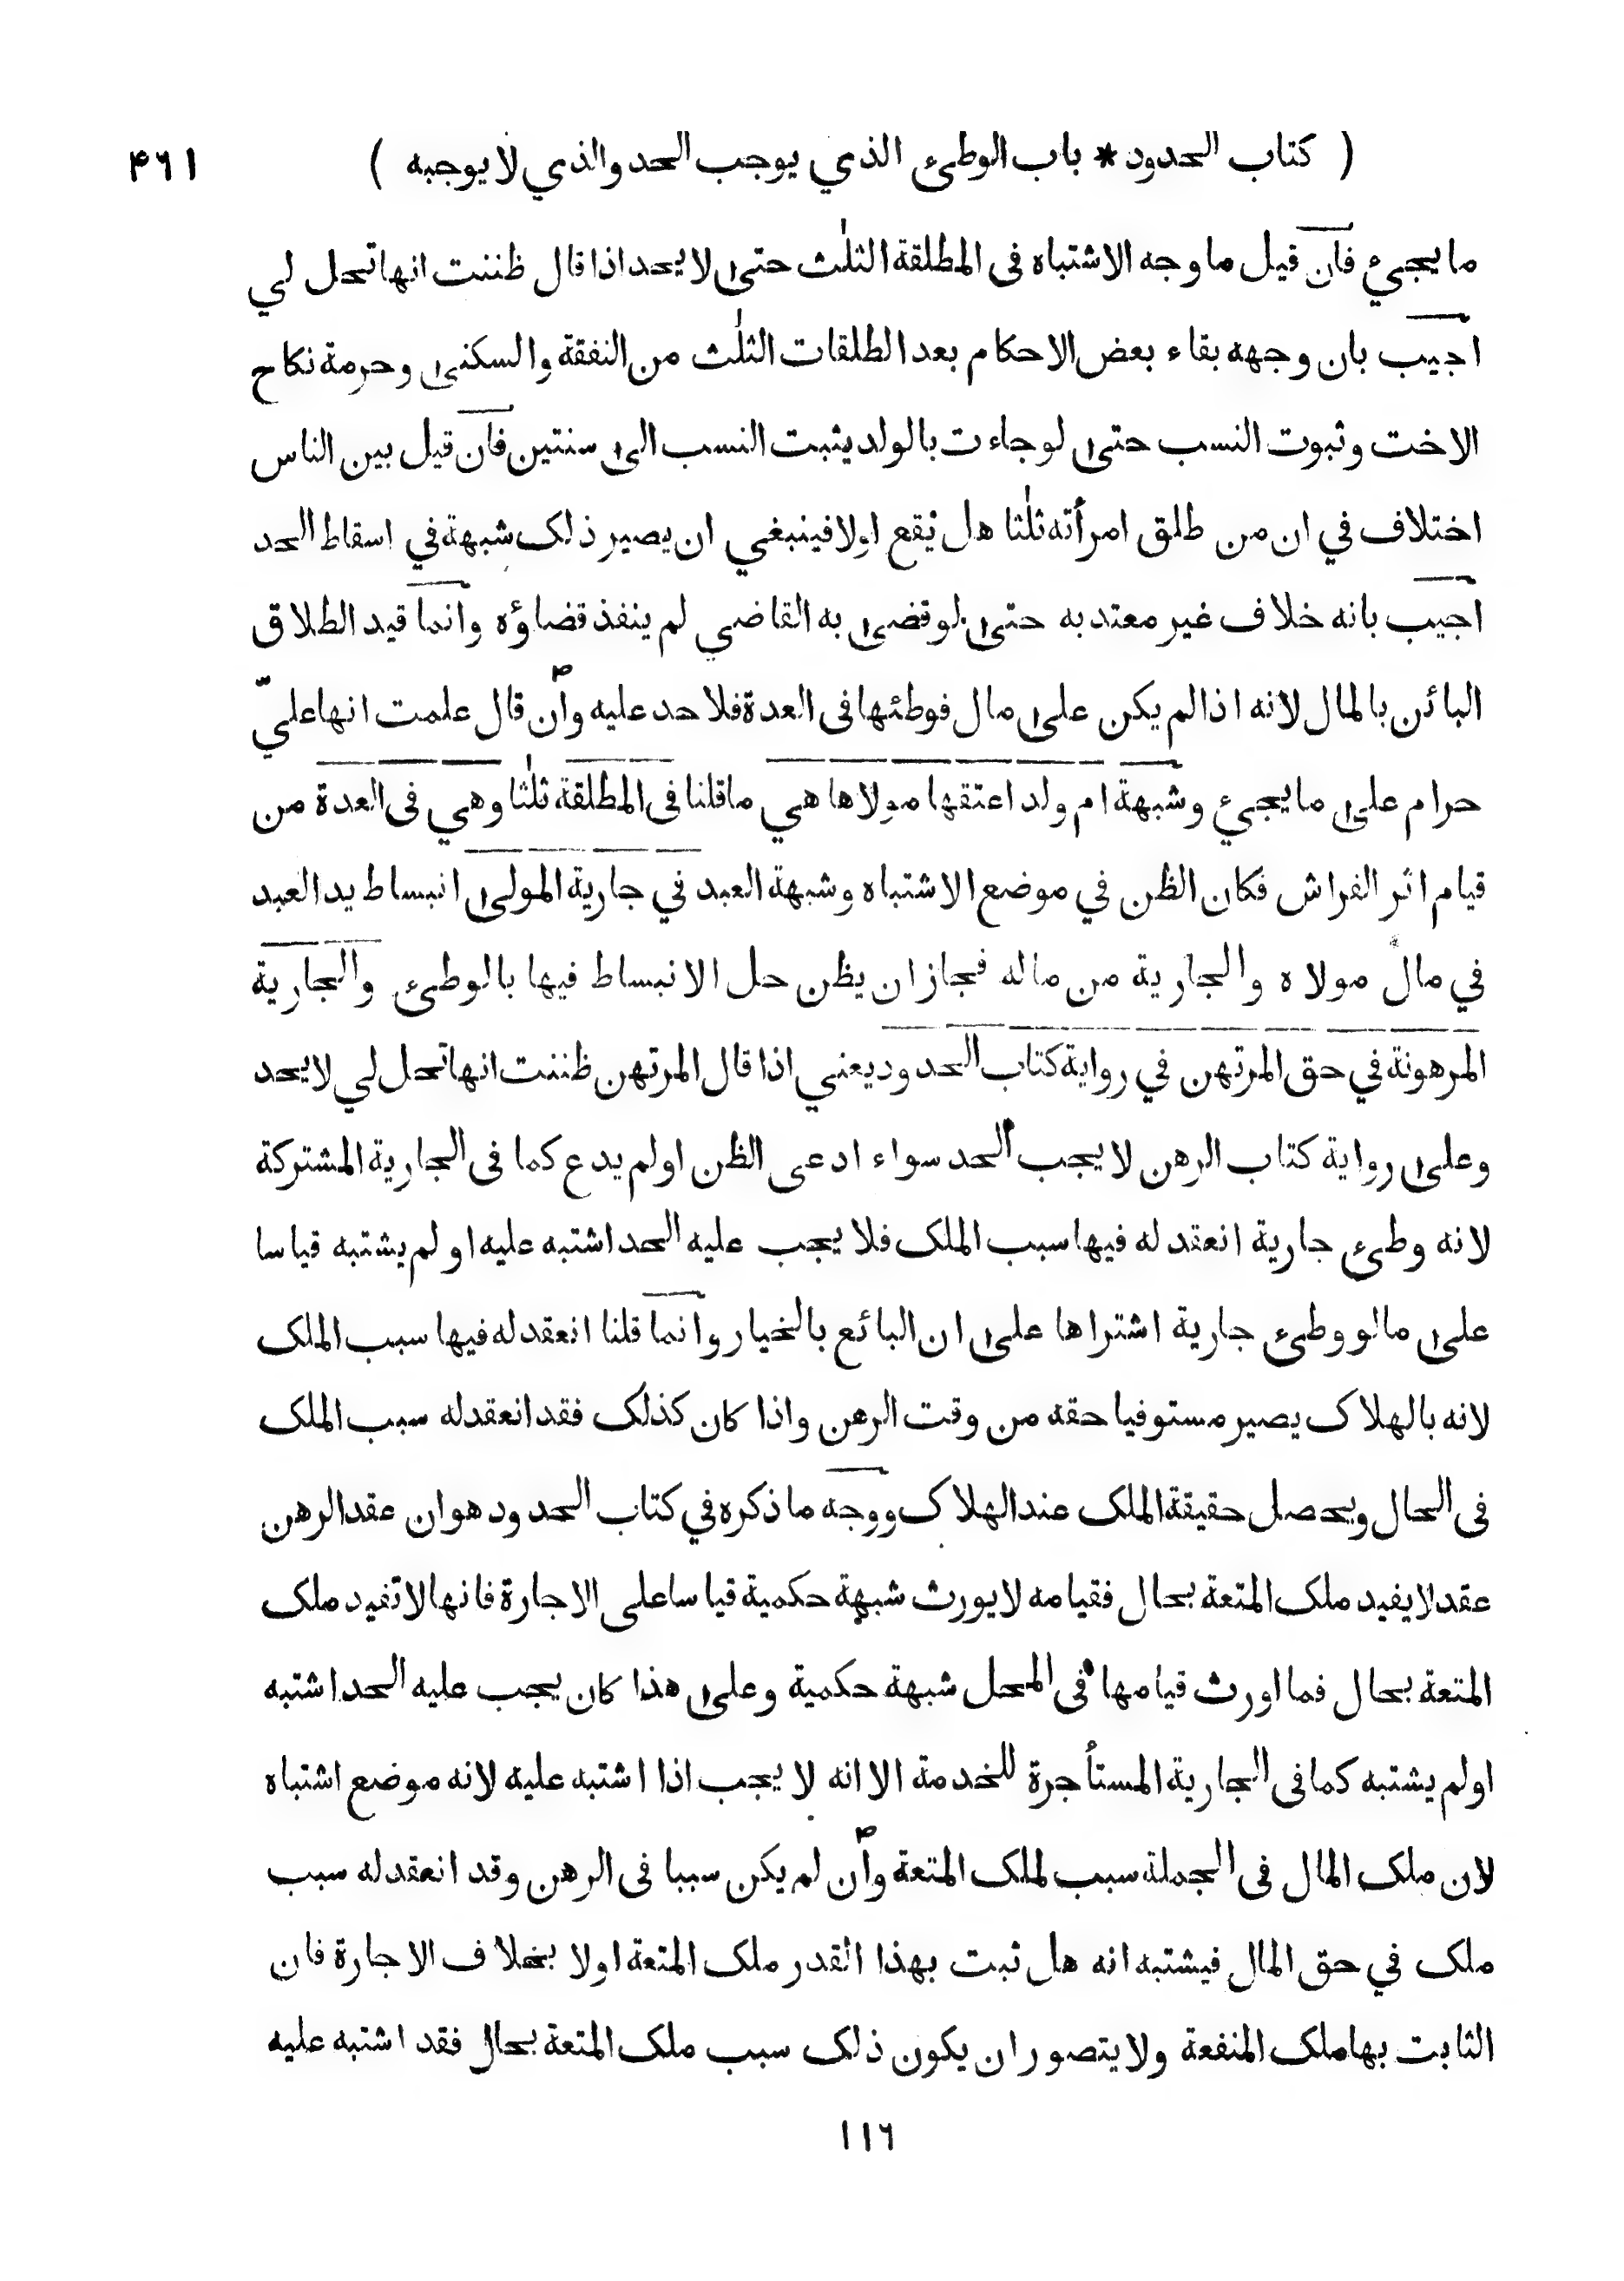 ( كتاب الحدود * باب الوطئ الذي يوجب الحد والذي لا يوجبه ) ۴۶۱
ما يجيئ فان قيل ما وجه الاشتباه فى المطلقة الثلٰث حتىٰ لا يحد اذا قال ظننت انها تحل لي
اجيب بان وجهه بقاء بعض الاحكام بعد الطلقات الثلٰث من النفقة والسكنىٰ وحرمة نكاح
الاخت وثبوت النسب حتىٰ لو جاءت بالولد يثبت النسب الىٰ سنتين فان قيل بين الناس
اختلاف في ان من طلق امرأته ثلٰثا هل يقع اولا فينبغي ان يصير ذلك شبهة في اسقاط الحد
اجيب بانه خلاف غير معتد به حتىٰ لو قضىٰ به القاضي لم ينفذ قضاؤه وانما قيد الطلاق
البائن بالمال لانه اذا لم يكن علىٰ مال فوطئها فى العدة فلا حد عليه وان قال علمت انها عليّ
حرام علىٰ ما يجيئ وشبهة ام ولد اعتقها مولاها هي ما قلنا فى المطلقة ثلٰثا وهي فى العدة من
قيام اثر الفراش فكان الظن في موضع الاشتباه وشبهة العبد في جارية المولىٰ انبساط يد العبد
في مال مولاه والجارية من ماله فجاز ان يظن حل الانبساط فيها بالوطئ والجارية
المرهونة في حق المرتهن في رواية كتاب الحدود يعني اذا قال المرتهن ظننت انها تحل لي لا يحد
وعلىٰ رواية كتاب الرهن لا يجب الحد سواء ادعى الظن اولم يدع كما فى الجارية المشتركة
لانه وطئ جارية انعقد له فيها سبب الملك فلا يجب عليه الحد اشتبه عليه او لم يشتبه قياسا
علىٰ ما لو وطئ جارية اشتراها علىٰ ان البائع بالخيار وانما قلنا انعقد له فيها سبب الملك
لانه بالهلاك يصير مستوفيا حقه من وقت الرهن واذا كان كذلك فقد انعقد له سبب الملك
فى الحال ويحصل حقيقة الملك عند الهلاك ووجه ما ذكره في كتاب الحدود هو ان عقد الرهن
عقد لا يفيد ملك المتعة بحال فقيامه لا يورث شبهة حكمية قياسا على الاجارة فانها لا تفيد ملك
المتعة بحال فما اورث قيامها فى المحل شبهة حكمية وعلىٰ هذا كان يجب عليه الحد اشتبه
اولم يشتبه كما فى الجارية المستأجرة للخدمة الا انه لا يجب اذا اشتبه عليه لانه موضع اشتباه
لان ملك المال فى الجملة سبب لملك المتعة وان لم يكن سببا فى الرهن وقد انعقد له سبب
ملك في حق المال فيشتبه انه هل ثبت بهذا القدر ملك المتعة اولا بخلاف الاجارة فان
الثابت بها ملك المنفعة ولا يتصور ان يكون ذلك سبب ملك المتعة بحال فقد اشتبه عليه
۱۱۶